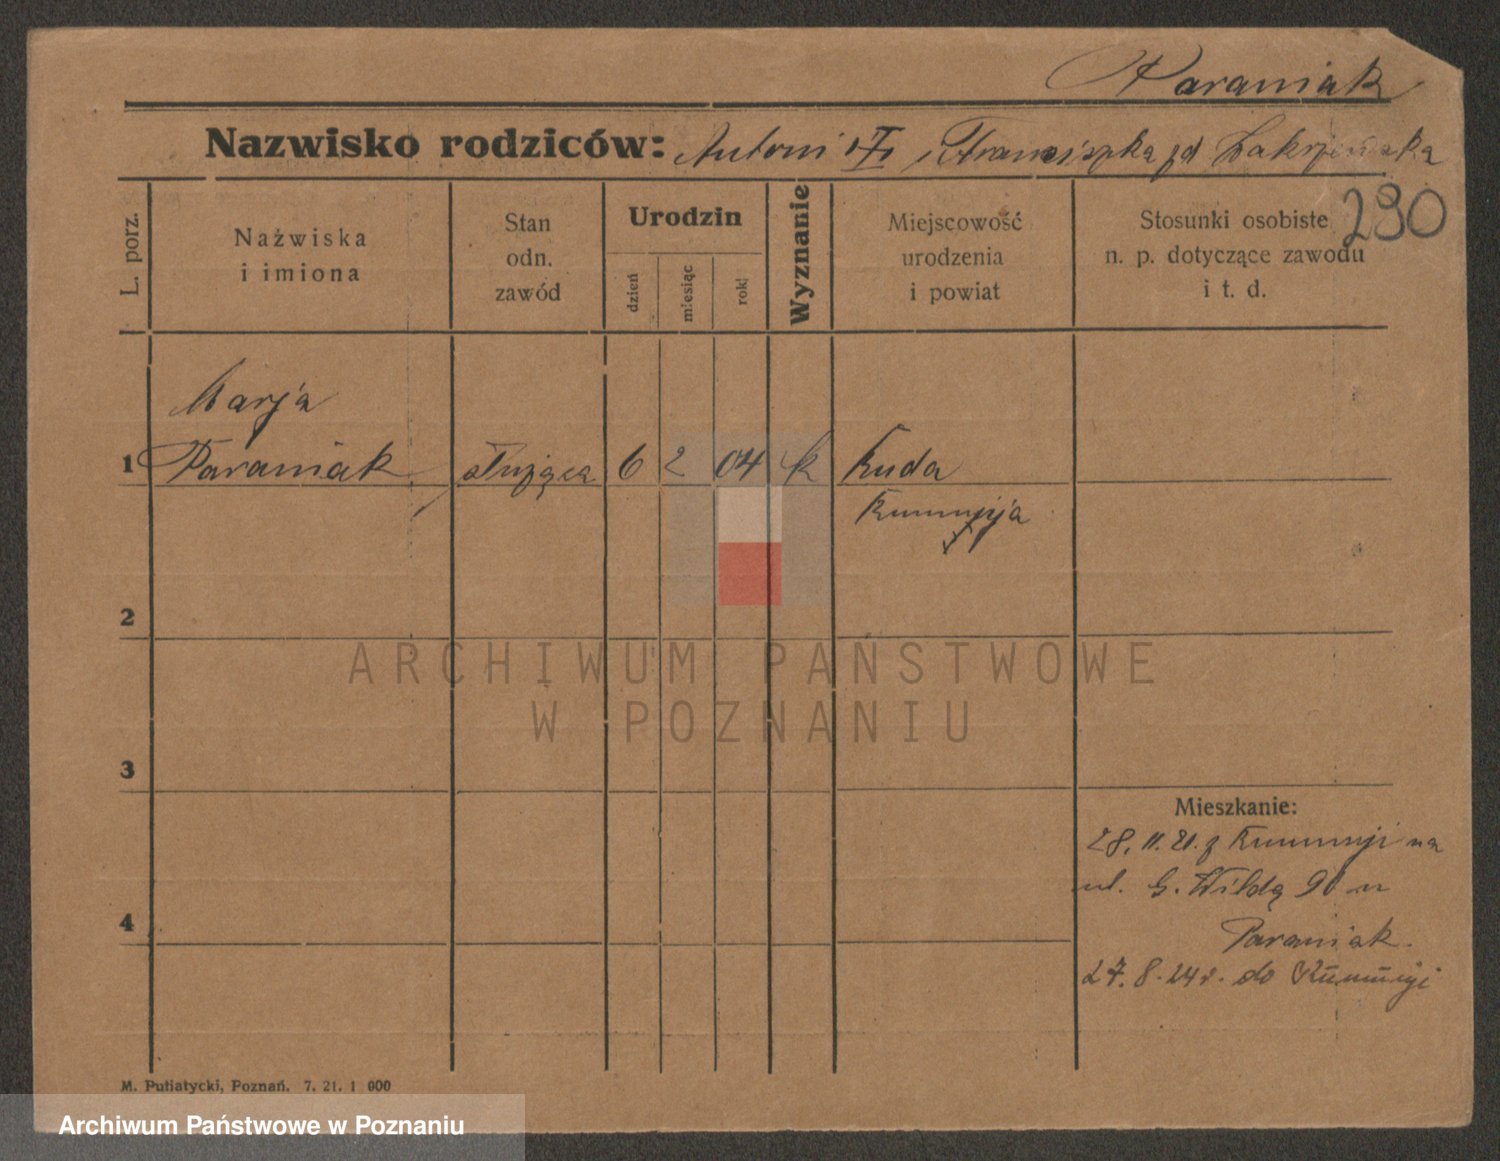 Paraniak
Nazwisko rodziców: Antoni i Franciszka zd
290
L. porz.
Nazwiska
i imiona
Stan
odn.
zawód
Urodzin
dzień
miesiąc
rok
Wyznanie
Miejscowość
urodzenia
i powiat
Stosunki osobiste
n. p. dotyczące zawodu
i t. d.
Marja
1 Paraniak służąca 6 2 04 k Ruda
Rumunja
2
3
4
Mieszkanie:
28. 11. 21. z Rumunji na
ul. G. Wildą 90 u
Paraniak.
27. 8. 24 r. do Rumunji
M. Putiatycki, Poznań. 7. 21. 1 000
ARCHIWUM PAŃSTWOWE
W POZNANIU
Archiwum Państwowe w Poznaniu